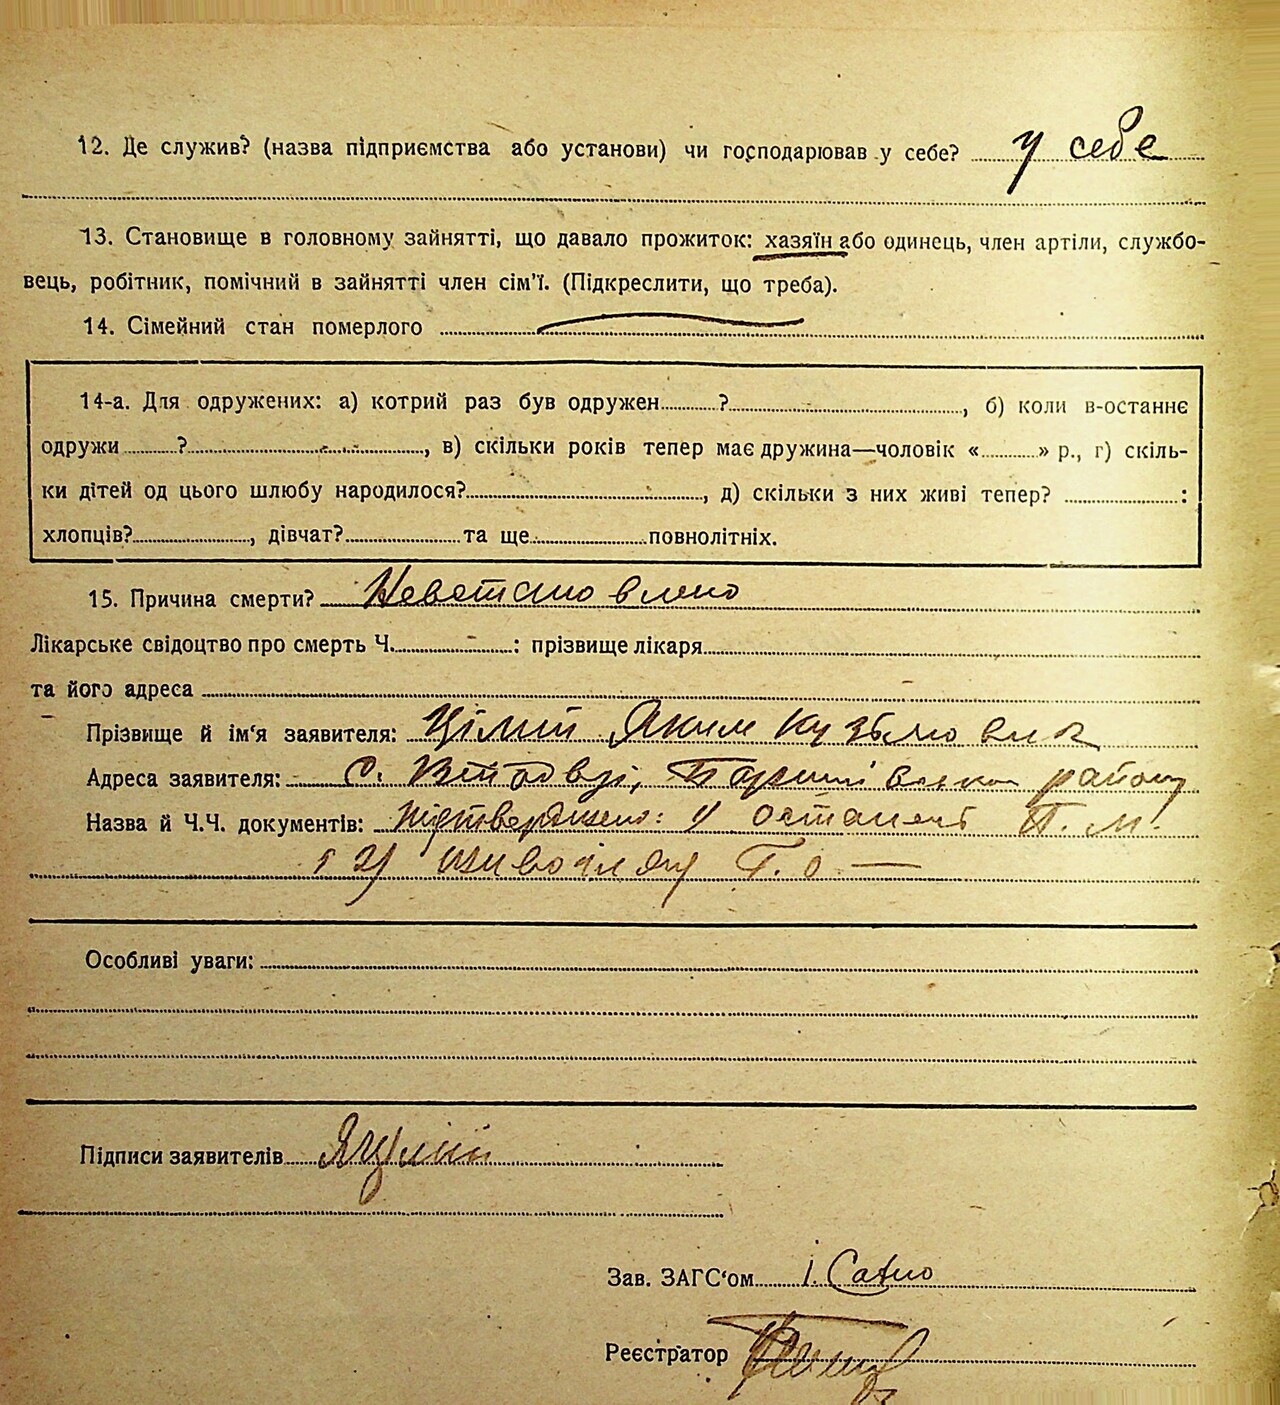 12. Де служив? (назва підприємства або установи) чи господарював у себе? у себе
13. Становище в головному зайнятті, що давало прожиток: хазяїн або одинець, член артіли, службо-
вець, робітник, помічний в зайнятті член сім'ї. (Підкреслити, що треба).
14. Сімейний стан померлого
14-а. Для одружених: а) котрий раз був одружен ?, б) коли в-останнє
одружи ?, в) скільки років тепер має дружина—чоловік « » р., г) скіль-
ки дітей од цього шлюбу народилося?, д) скільки з них живі тепер? :
хлопців?, дівчат? та ще повнолітніх.
15. Причина смерти? Невстановлено
Лікарське свідоцтво про смерть Ч. : прізвище лікаря
та його адреса
Прізвище й ім'я заявителя: Яким Кузьмович
Адреса заявителя: с. району
Назва й Ч.Ч. документів:
Особливі уваги:
Підписи заявителів
Зав. ЗАГС'ом І.
Реєстратор